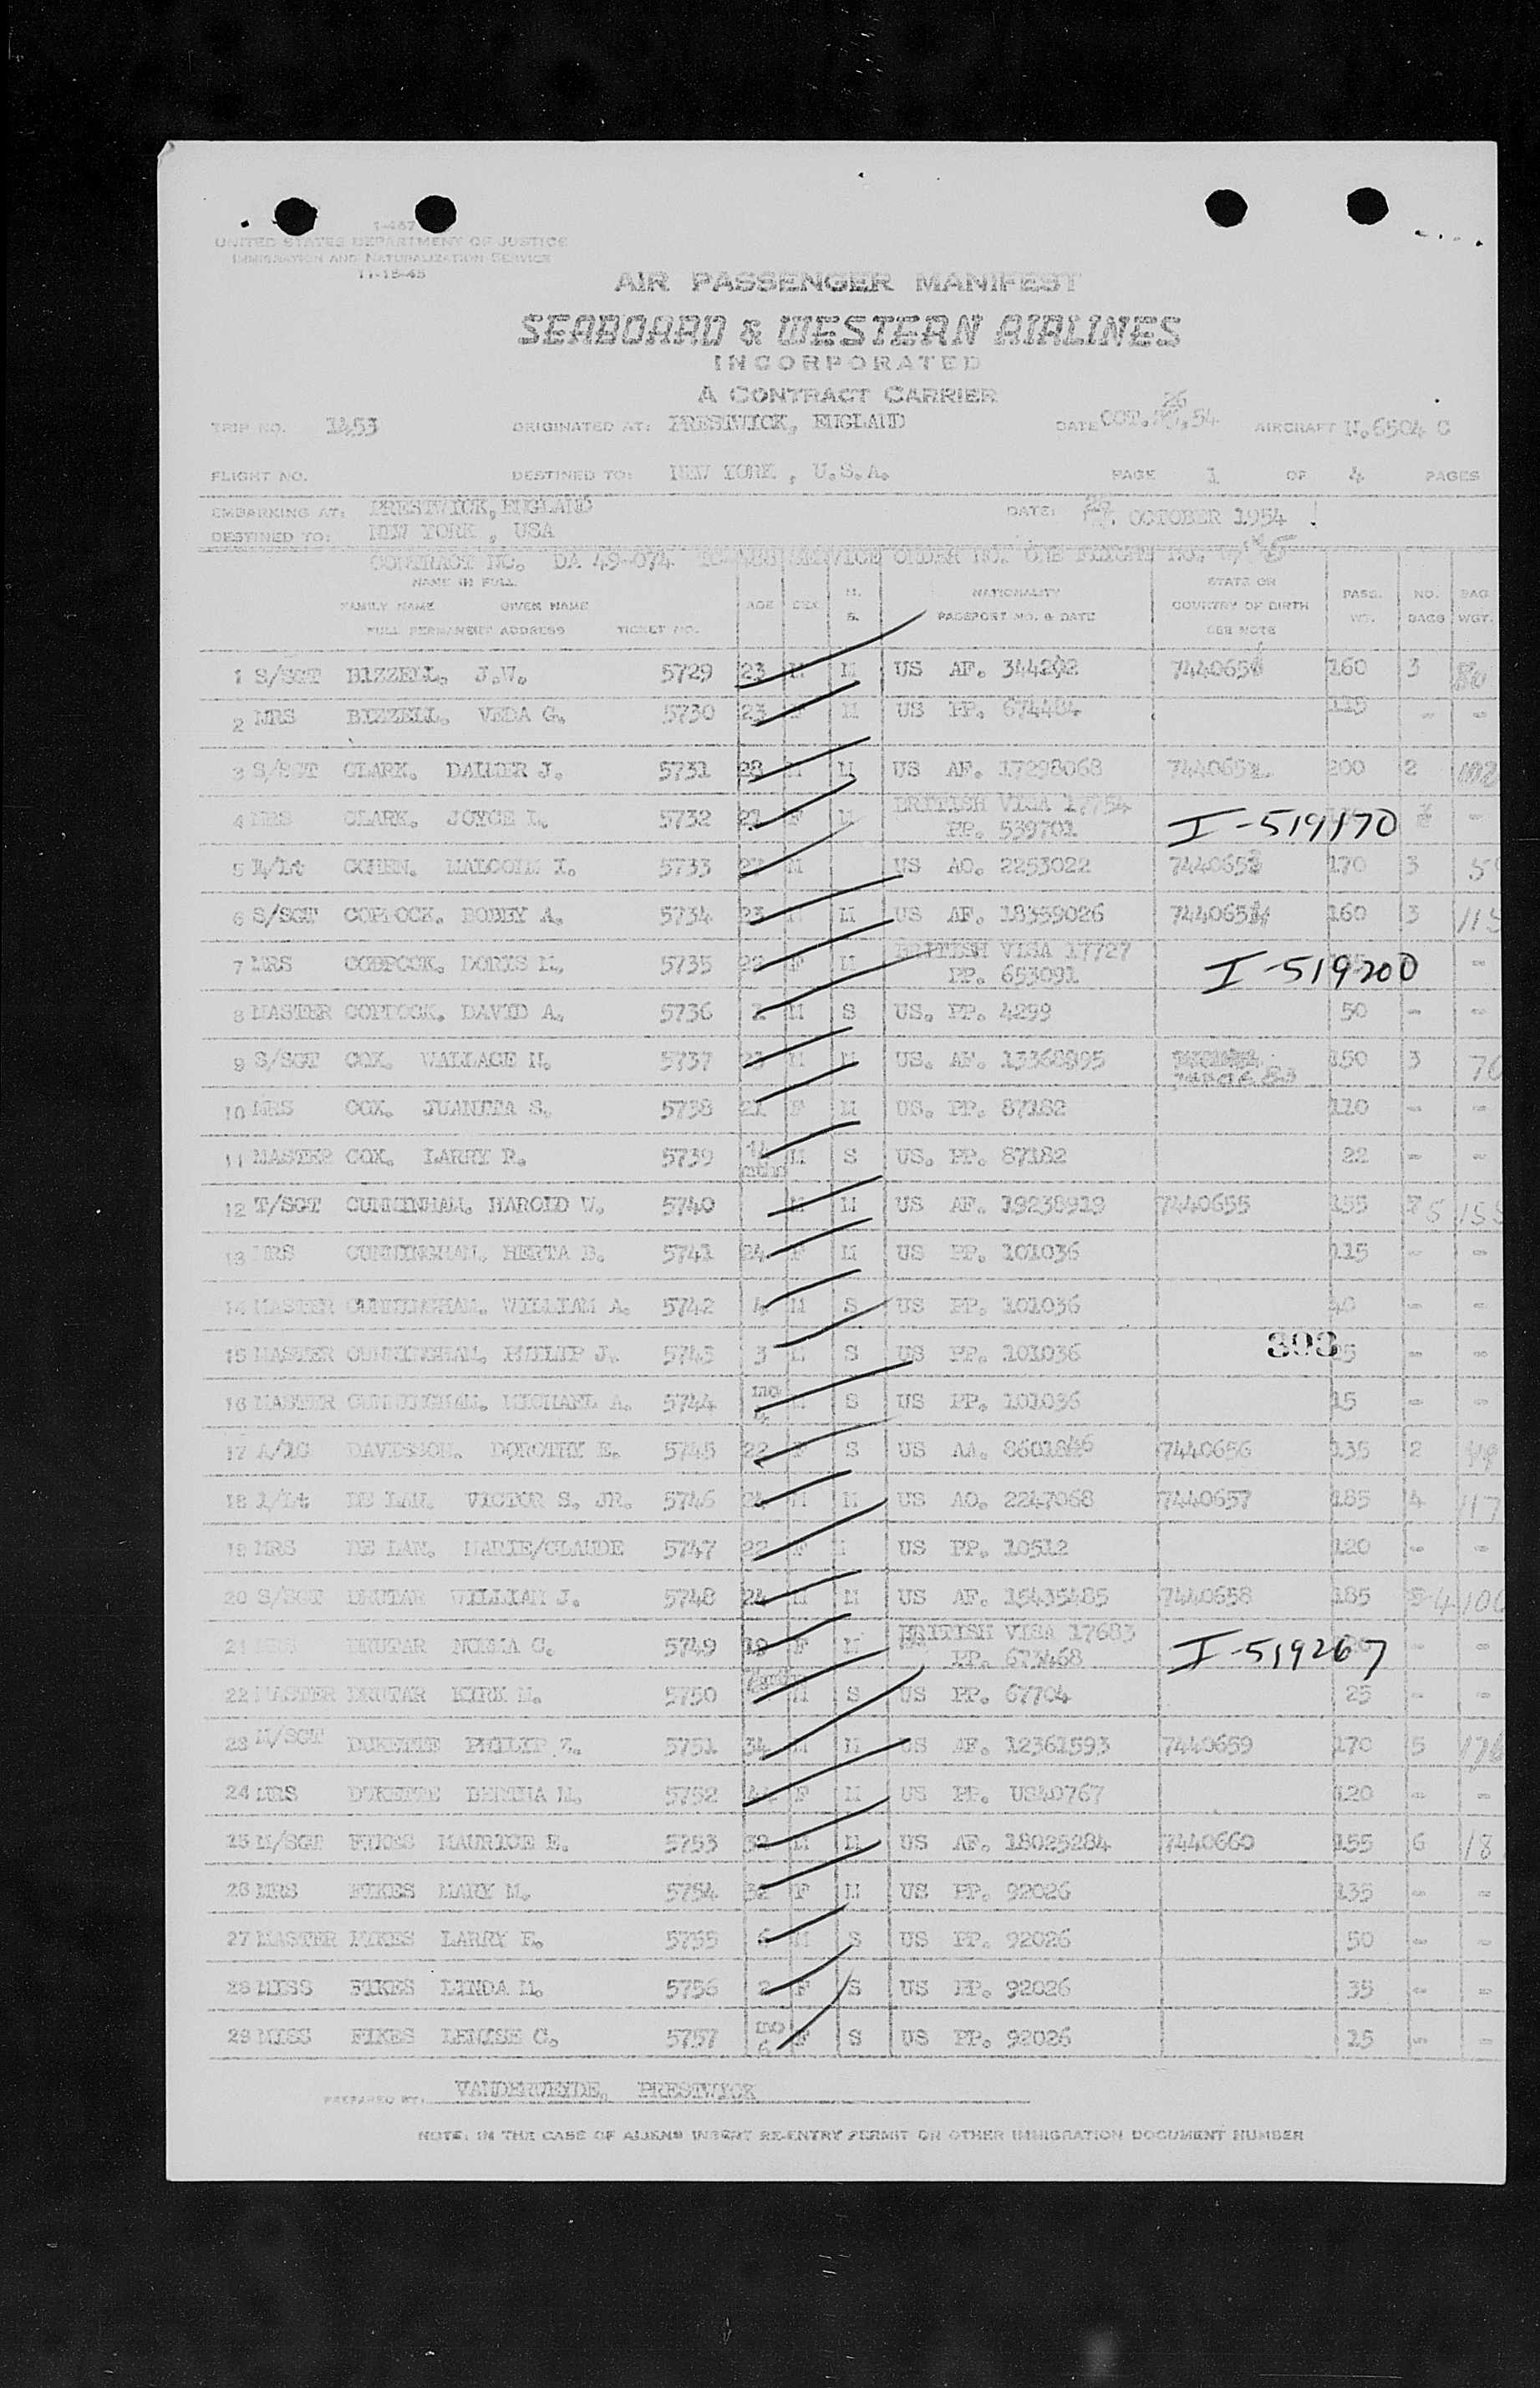 1-467
UNITED STATES DEPARTMENT OF JUSTICE
IMMIGRATION AND NATURALIZATION SERVICE
11-15-45
AIR PASSENGER MANIFEST
SEABOARD & WESTERN AIRLINES
INCORPORATED
A CONTRACT CARRIER
TRIP NO. 1453 ORIGINATED AT: PRESTWICK, ENGLAND DATE OCT. 26, 54 AIRCRAFT N.6504 C
FLIGHT NO. DESTINED TO: NEW YORK , U.S.A. PAGE 1 OF 4 PAGES
EMBARKING AT: PRESTWICK, ENGLAND DATE: OCTOBER 1954
DESTINED TO: NEW YORK , USA
CONTRACT NO. DA 49-074 SERVICE ORDER NO. ONE FLIGHT NO.
NAME IN FULL M. NATIONALITY STATE OR PASS. NO. BAG
FAMILY NAME GIVEN NAME AGE SEX S. PASSPORT NO. & DATE COUNTRY OF BIRTH WT. BAGS WGT.
FULL PERMANENT ADDRESS TICKET NO. SEE NOTE
1 S/SGT BIZZELL, J.W. 5729 23 M M US AF. 344202 744065 160 3 80
2 MRS BIZZELL. VEDA G. 5730 23 F M US PP. 674484 115 - -
3 S/SGT CLARK. DALMER J. 5731 28 M M US AF. 17298068 744065 200 2 102
4 MRS CLARK. JOYCE L. 5732 F M BRITISH VISA 17754 PP. 539701 I-519170 -
5 1/Lt COHEN. MALCOLM I. 5733 27 M US AO. 2253022 7440653 170 3
6 S/SGT COPPOCK. BOBBY A. 5734 23 M M US AF. 18359026 7440654 160 3 115
7 MRS COPPOCK. DORIS M. 5735 22 F M BRITISH VISA 17727 PP. 653091 I-519200 -
8 MASTER COPPOCK. DAVID A. 5736 2 M S US. PP. 4299 50 - -
9 S/SGT COX. WALLACE N. 5737 23 M M US. AF. 13360895 150 3 70
10 MRS COX. JUANITA S. 5738 21 F M US. PP. 87182 110 - -
11 MASTER COX. LARRY R. 5739 mths M S US. PP. 87182 22 - -
12 T/SGT CUNNINHAM. HAROLD W. 5740 M M US AF. 19238919 7440655 155 5 155
13 MRS CUNNINGHAM. HERTA B. 5741 24 F M US PP. 101036 115 - -
14 MASTER CUNNINGHAM. WILLIAM A. 5742 4 M S US PP. 101036 40 - -
15 MASTER CUNNINGHAM. PHILIP J. 5743 3 M S US PP. 101036 393 - -
16 MASTER CUNNINGHAM. MICHAEL A. 5744 mo 4 M S US PP. 101036 15 - -
17 A/1C DAVISSON. DOROTHY E. 5745 22 F S US AA. 7440656 135 2 44
18 1/Lt DE LAN. VICTOR S. JR. 5746 24 M M US AO. 2247068 7440657 185 4 117
19 MRS DE LAN. MARIE/CLAUDE 5747 22 F M US PP. 10512 120 - -
20 S/SGT DRUTAR WILLIAM J. 5748 24 M M US AF. 15435485 7440658 185 4 106
21 MRS DRUTAR NORMA C. 5749 19 F M BRITISH VISA 17683 PP. 673468 I-519267 - -
22 MASTER DRUTAR KIRK M. 5750 M S US PP. 67704 25 - -
23 M/SGT DUKETTE PHILIP Z. 5751 34 M M US AF. 12361593 7440659 170 5 176
24 MRS DUKETTE DERINA M. 5752 44 F M US PP. US40767 120 - -
25 M/SGT FIKES MAURICE E. 5753 32 M M US AF. 18025284 7440660 155 6 18
26 MRS FIKES MARY M. 5754 32 F M US PP. 92026 135 - -
27 MASTER FIKES LARRY E. 5755 6 M S US PP. 92026 50 - -
28 MISS FIKES LINDA M. 5756 2 F S US PP. 92026 35 - -
29 MISS FIKES DENISE C. 5757 mo 6 F S US PP. 92026 15 - -
PREPARED BY: VANDERVEYDE, PRESTWICK
NOTE: IN THE CASE OF ALIENS INSERT RE-ENTRY PERMIT OR OTHER IMMIGRATION DOCUMENT NUMBER